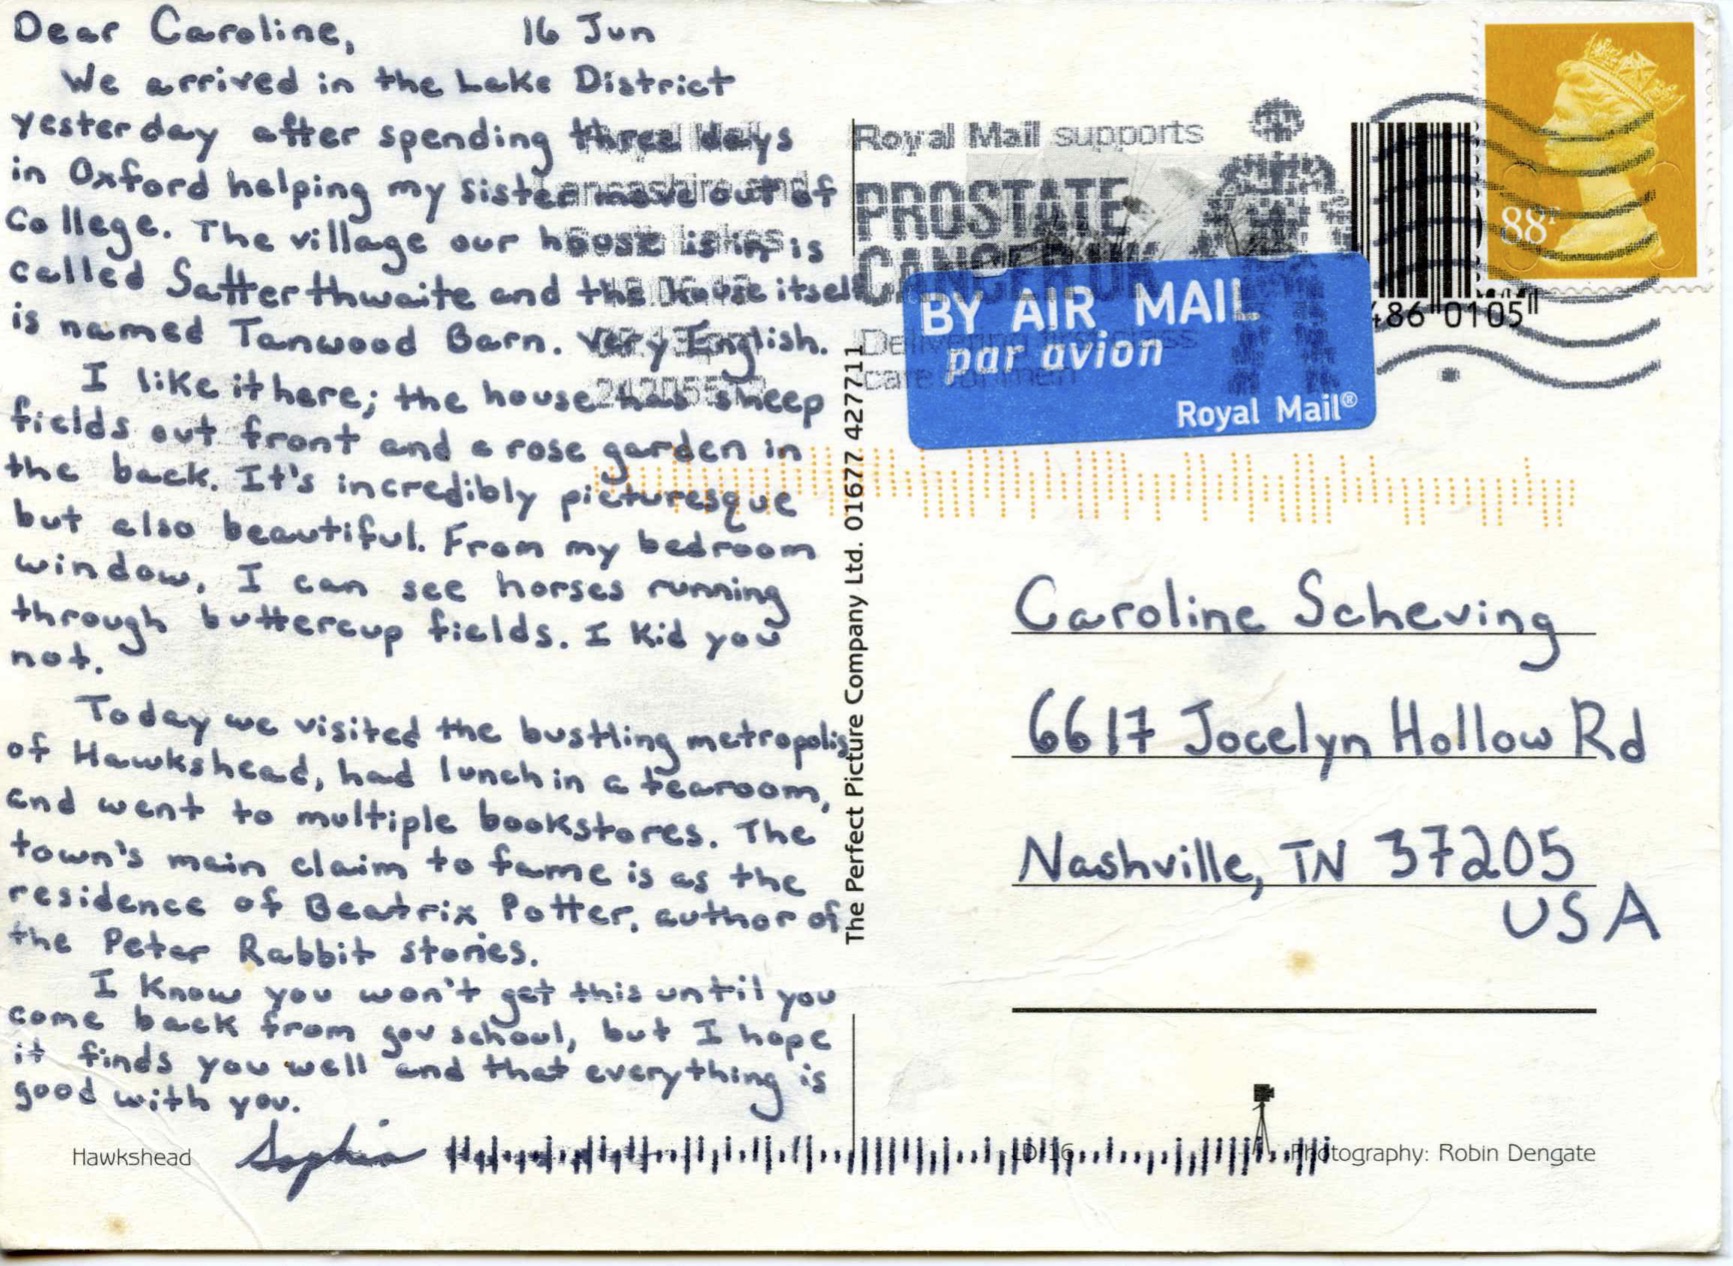 Dear Caroline, 16 Jun
We arrived in the Lake District
yesterday after spending three days
in Oxford helping my sister move out of
college. The village our house is in is
called Satterthwaite and the house itself
is named Tanwood Barn. Very English.
I like it here; the house has sheep
fields out front and a rose garden in
the back. It's incredibly picturesque
but also beautiful. From my bedroom
window, I can see horses running
through buttercup fields. I kid you
not.
Today we visited the bustling metropolis
of Hawkshead, had lunch in a tearoom,
and went to multiple bookstores. The
town's main claim to fame is as the
residence of Beatrix Potter, author of
the Peter Rabbit stories.
I know you won't get this until you
come back from gov school, but I hope
it finds you well and that everything is
good with you.
Sophia
Hawkshead
Royal Mail
Lancashire and
South Lakes
The Perfect Picture Company Ltd. 01677 427711
Royal Mail supports
PROSTATE
CANCER UK
Delivering first class
care for men
BY AIR MAIL
par avion
Royal Mail®
486 0105
88p
Caroline Scheving
6617 Jocelyn Hollow Rd
Nashville, TN 37205
USA
LD 16
Photography: Robin Dengate